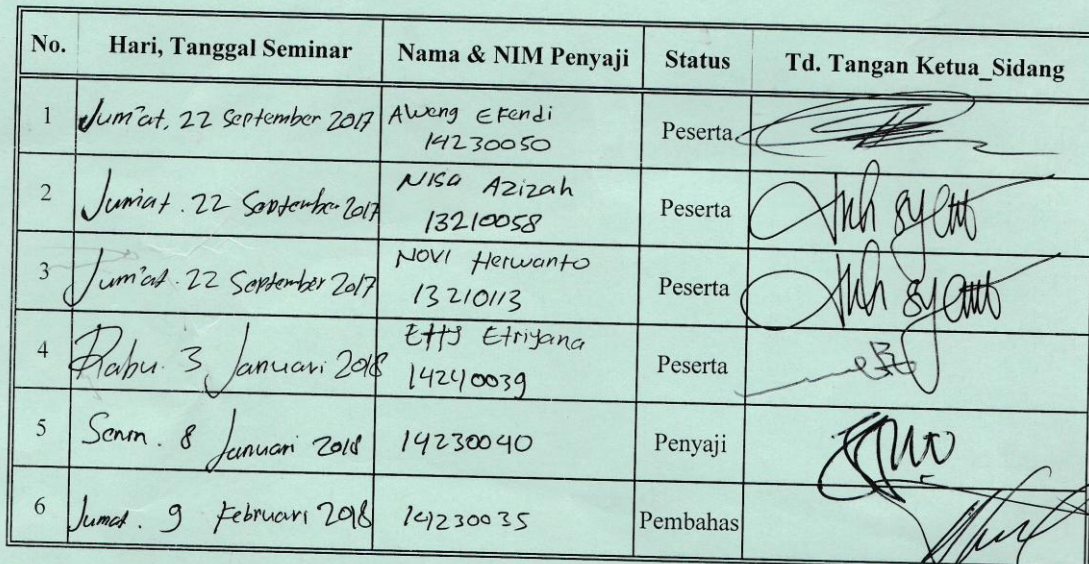 No. Hari, Tanggal Seminar Nama & NIM Penyaji Status Td. Tangan Ketua_Sidang
1 Jum'at, 22 September 2017 Aweng Efendi Peserta
14230050
2 Jum'at. 22 September 2017 Nisa Azizah Peserta
13210058
3 Jum'at. 22 September 2017 Novi Herwanto Peserta
13210113
4 Rabu. 3 Januari 2018 Etty Etriyana Peserta
14240039
5 Senin. 8 Januari 2018 14230040 Penyaji
6 Jumat. 9 Februari 2018 14230035 Pembahas